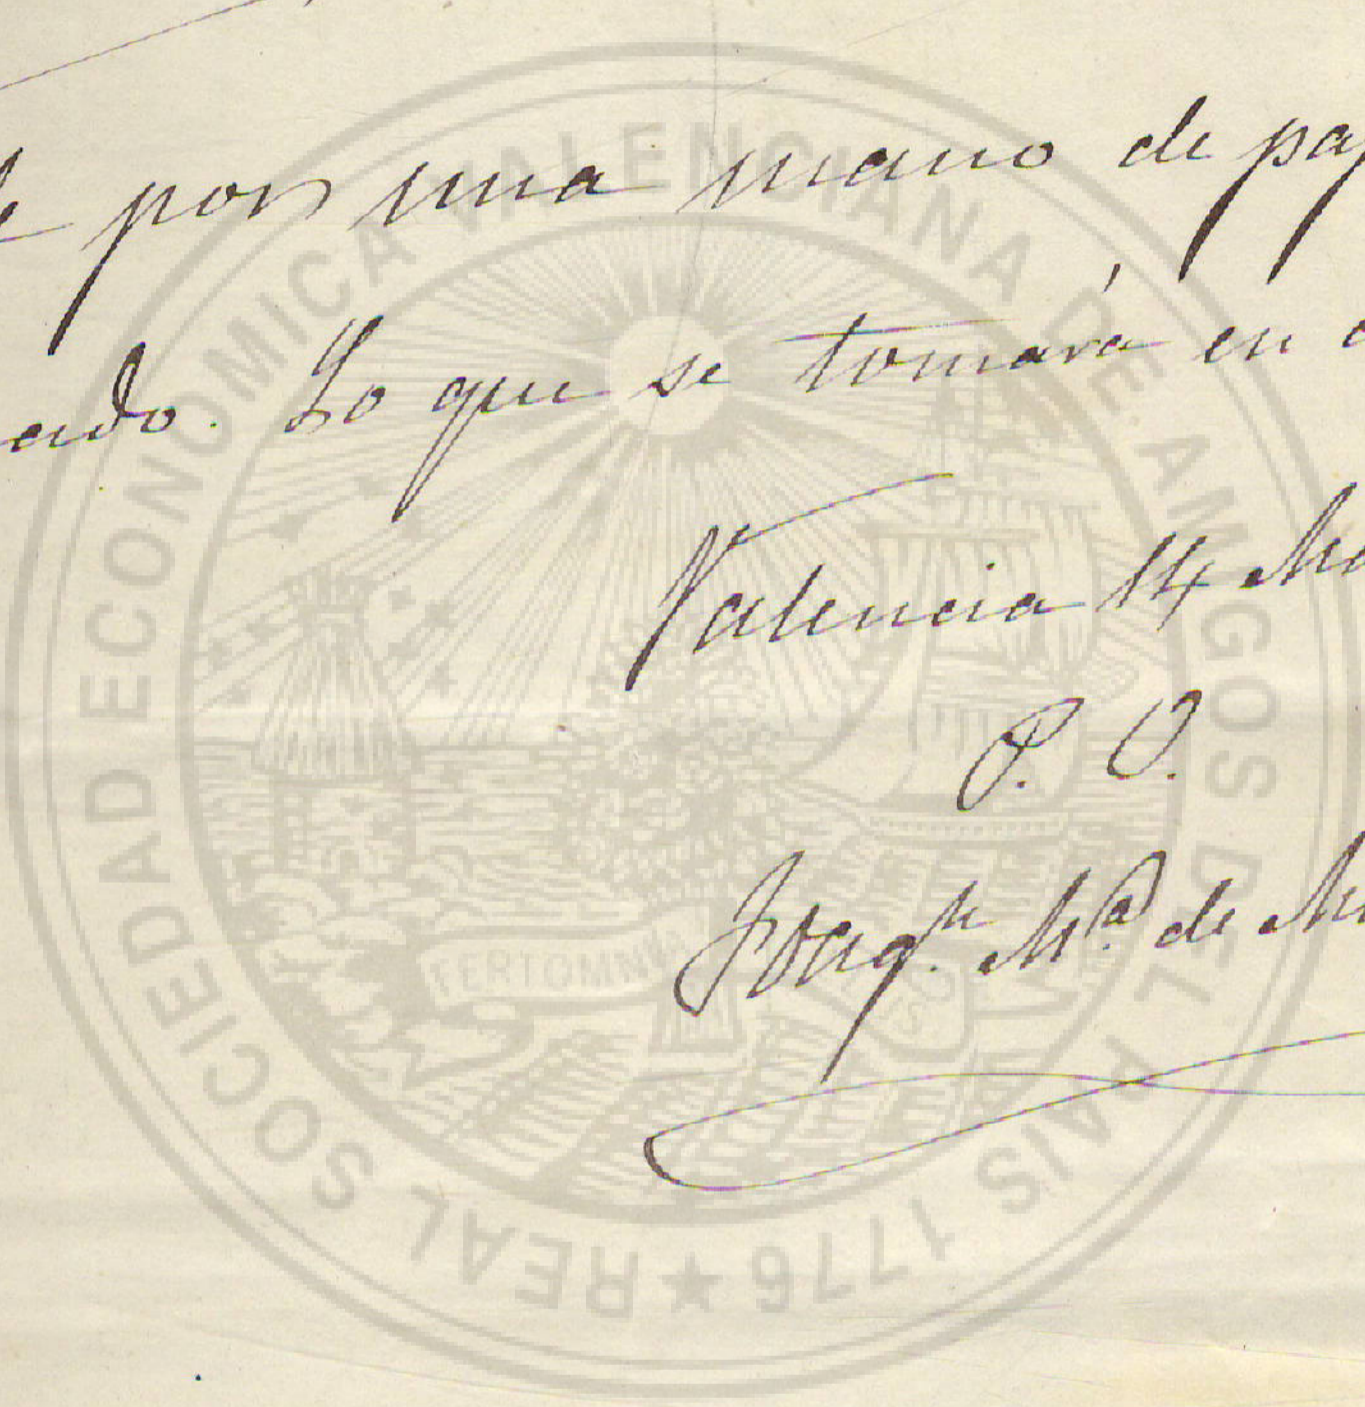 por una mano de pap
ado. Lo que se tomará en
Valencia 14 Ma
P. O.
Joaqⁿ. Mª de M
REAL SOCIEDAD ECONOMICA VALENCIANA DE AMIGOS DEL PAIS 1776 ★
FERTOMNIA